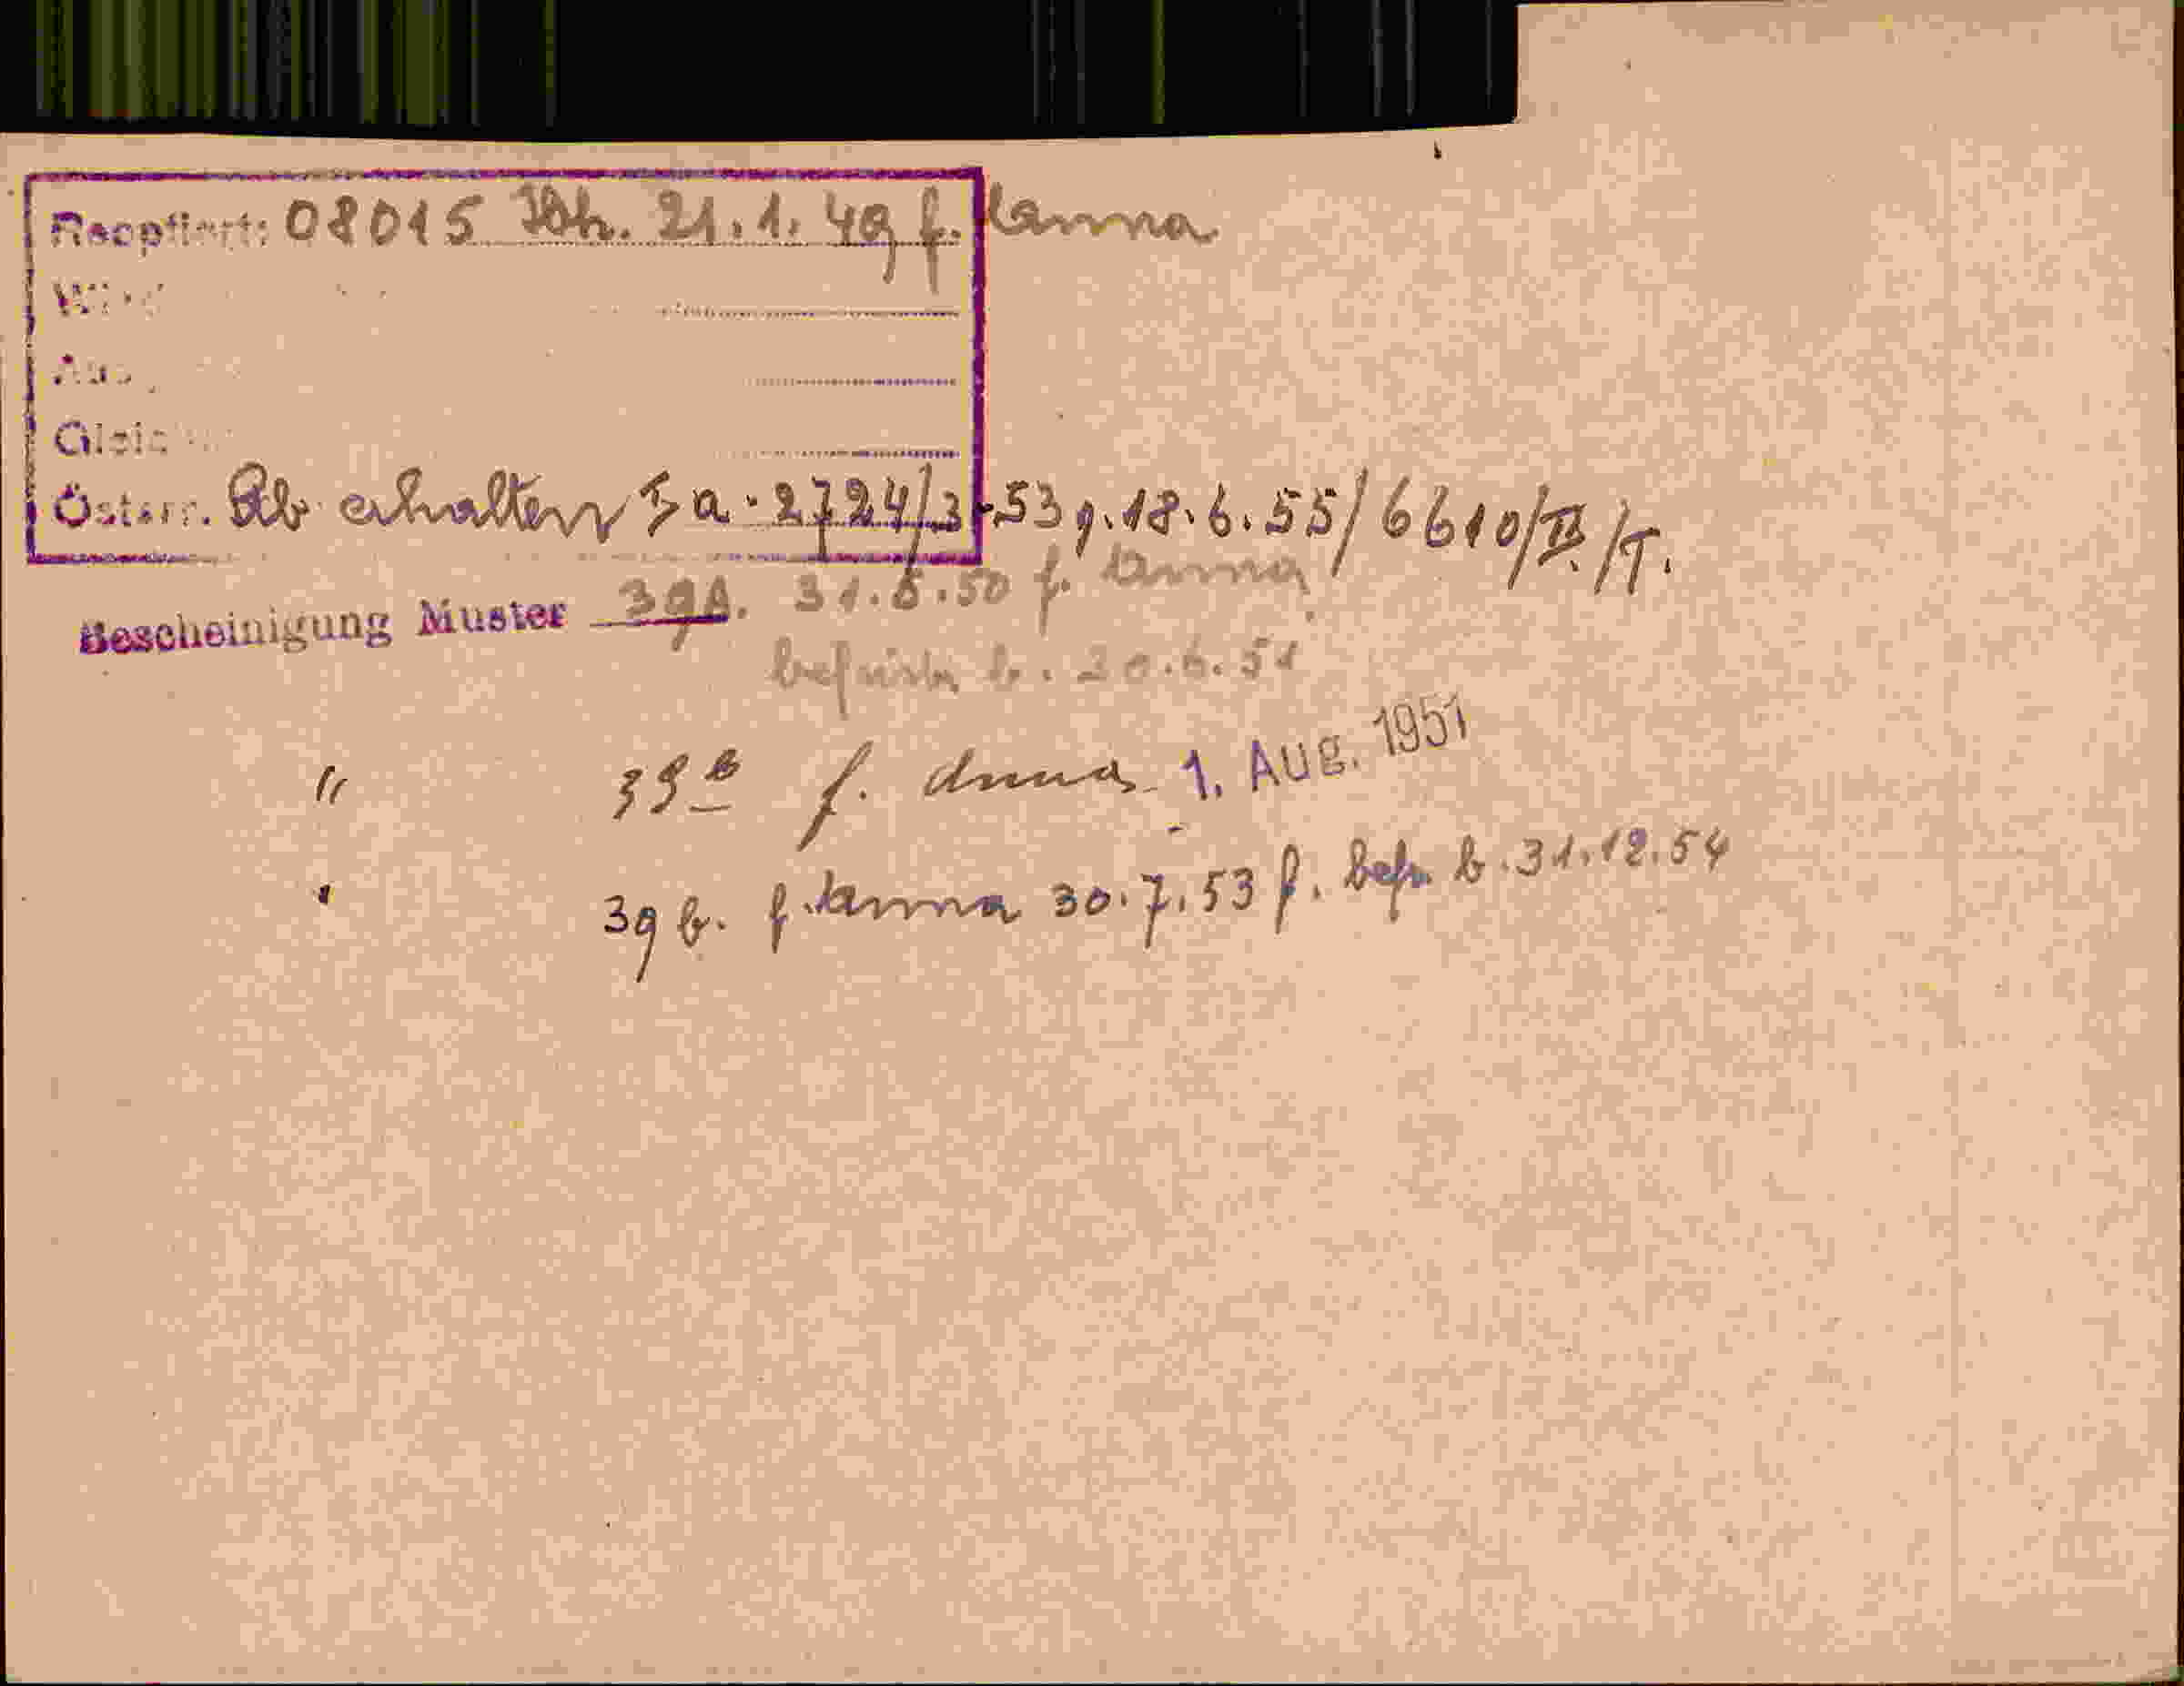 Reoptiert: 08015 21.1.49 f. Anna
Österr. Stb erhalten I a - 2724/3-53 v. 18.6.55/6610/II/T.
Bescheinigung Muster 39A. 31.5.50 f. Anna
befristet b. 20.6.51
" 39 b f. Anna 1. Aug. 1951
" 39 b. f. Anna 30.7.53 f. befr. b. 31.12.54